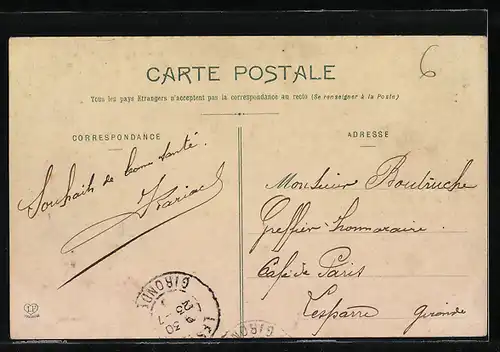 CARTE POSTALE
Tous les pays Etrangers n'acceptent pas la correspondance au recto (Se renseigner à la Poste)
CORRESPONDANCE
ADRESSE
Souhaits de bonne santé.
Monsieur Boutruche
Greffier honnoraire.
Café de Paris
Lesparre Gironde
6
GIRONDE
LES
GIRON